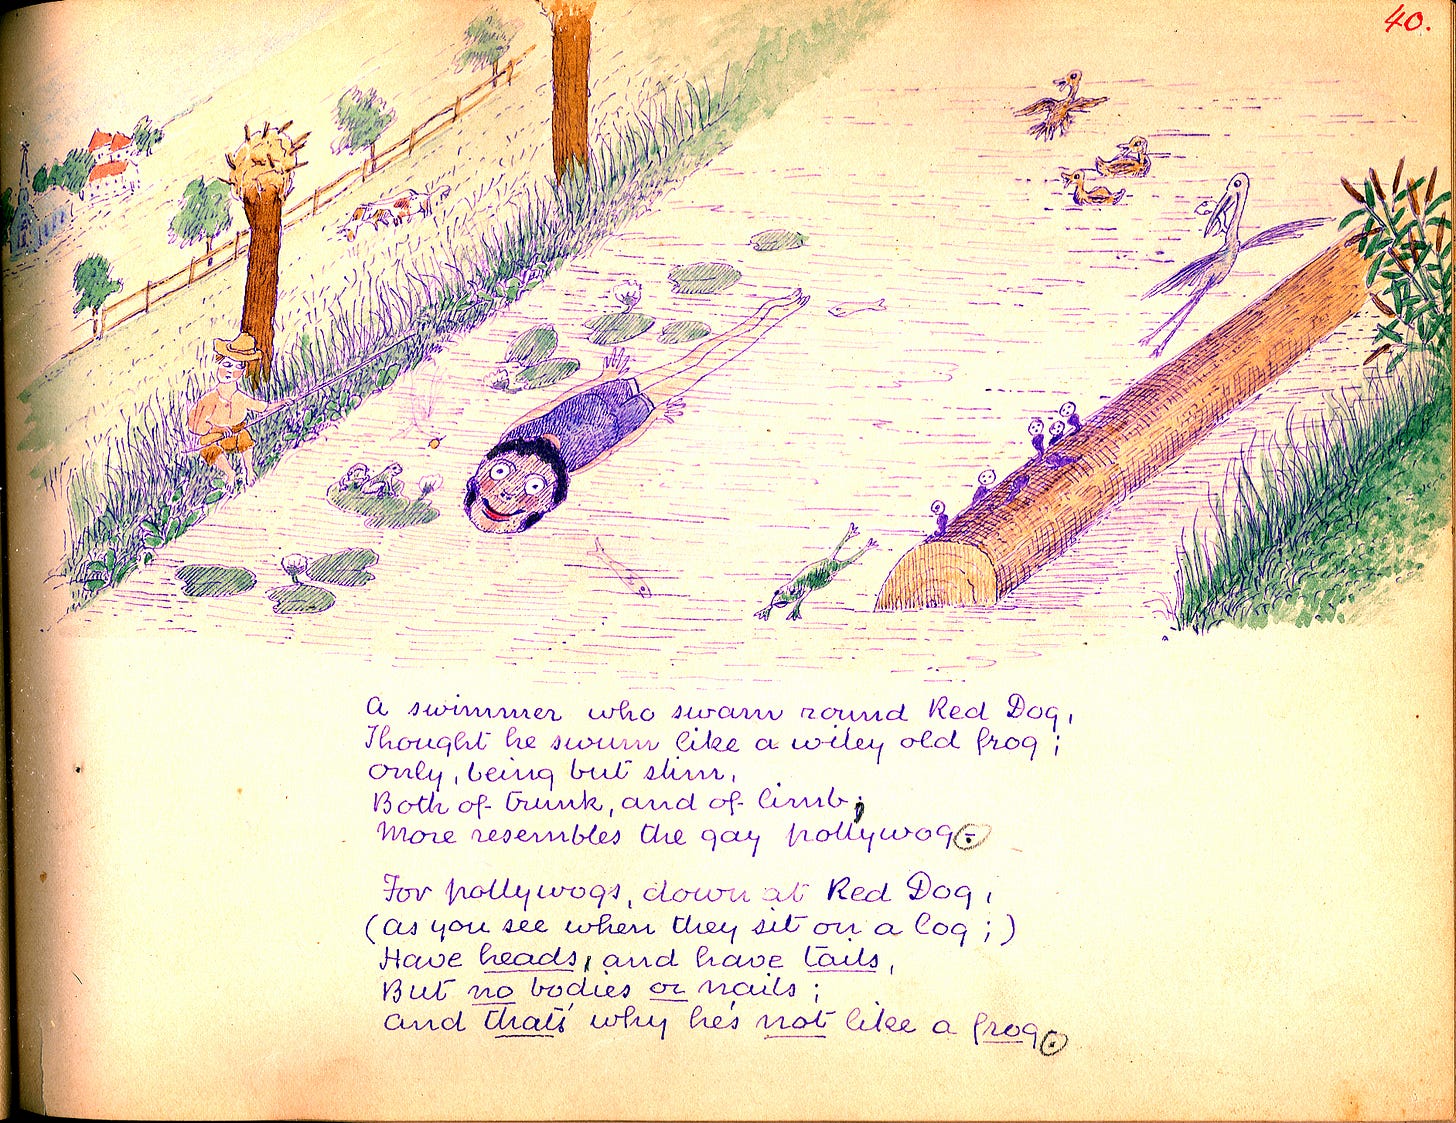 40.
A swimmer who swam round Red Dog,
Thought he swum like a wiley old frog;
only, being but slim,
Both of trunk, and of limb;
More resembles the gay pollywog.
For pollywogs, down at Red Dog,
(as you see when they sit on a log;)
Have heads, and have tails,
But no bodies or nails;
and that's why he's not like a frog.